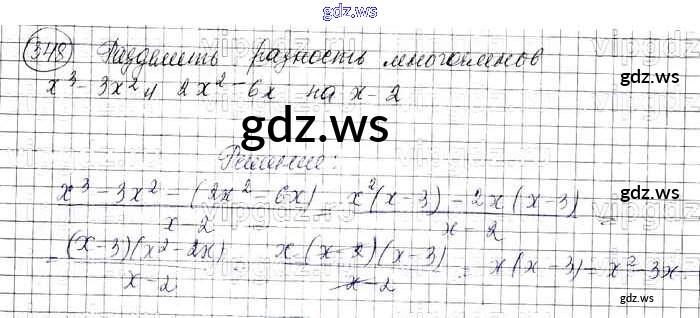 gdz.ws
348 Разделить разность многочленов
x³ - 3x² и 2x² - 6x на x - 2
gdz.ws
gdz.ws
Решение:
(x³ - 3x² - (2x² - 6x)) / (x - 2) = (x²(x - 3) - 2x(x - 3)) / (x - 2) =
= ((x - 3)(x² - 2x)) / (x - 2) = (x(x - 2)(x - 3)) / (x - 2) = x(x - 3) = x² - 3x.
gdz.ws